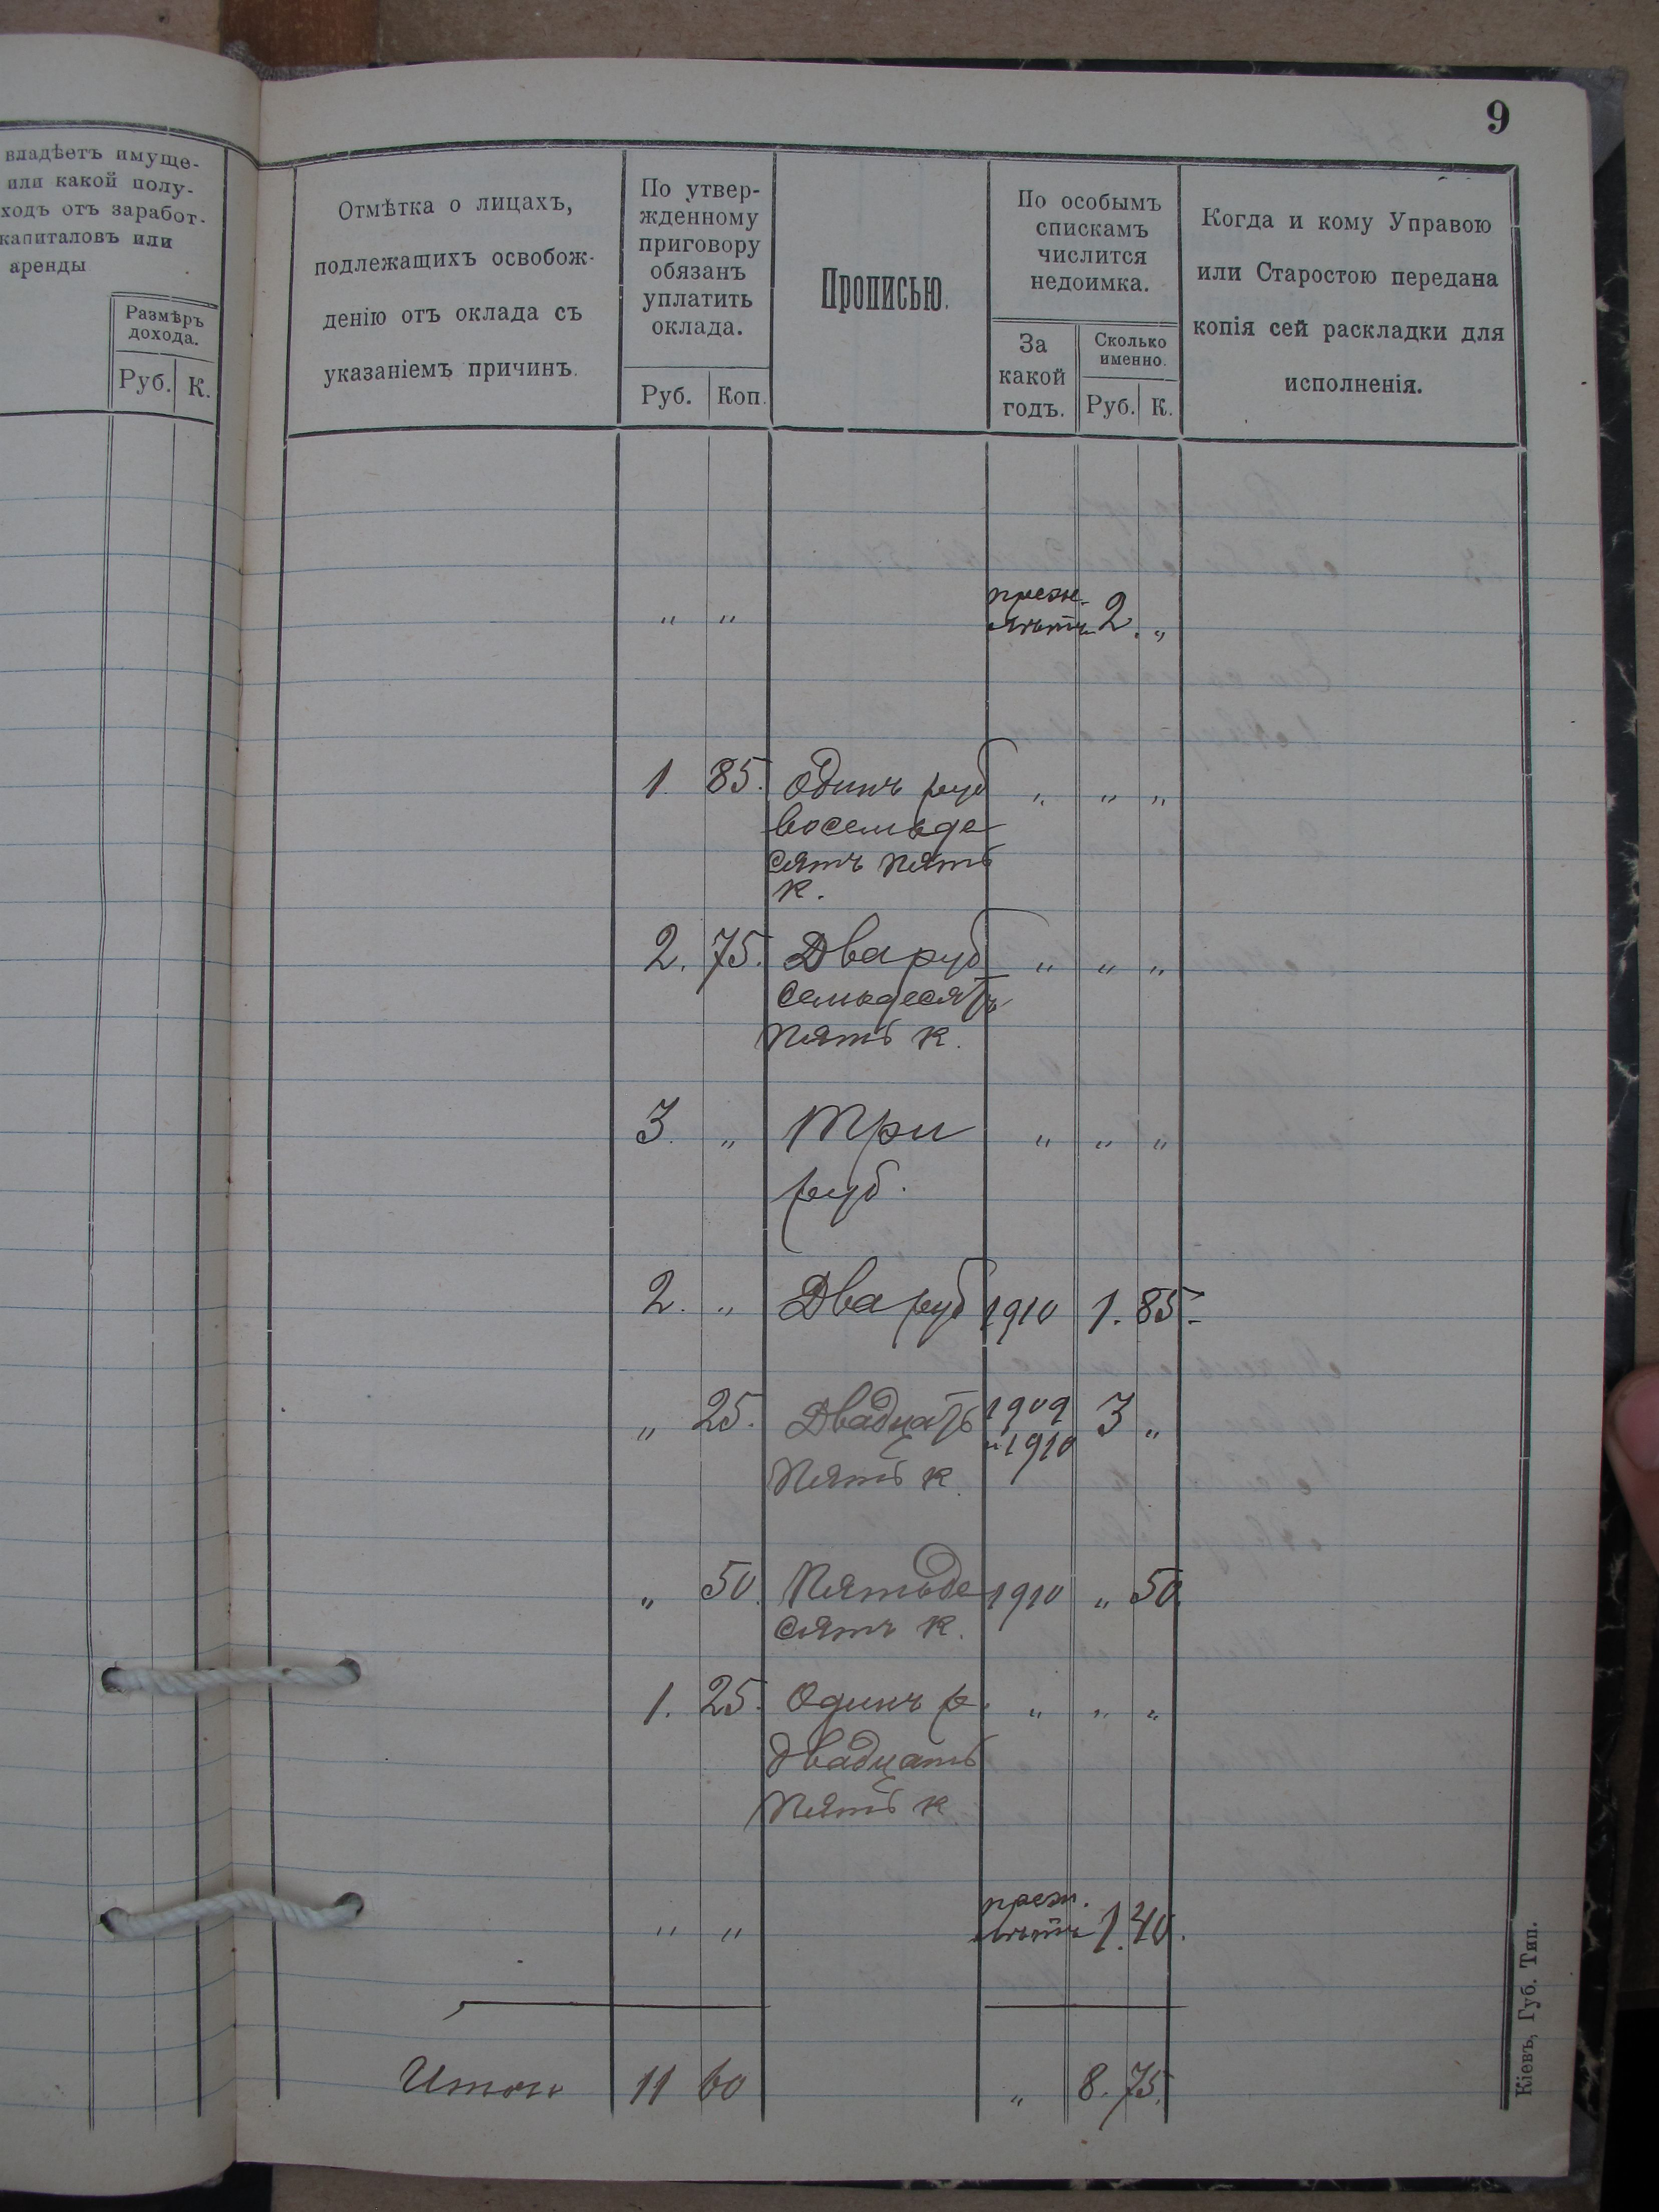 9
владѣетъ имуще-
или какой полу-
ходъ отъ заработ-
капиталовъ или
аренды
Размѣръ
дохода.
Руб. К.
Отмѣтка о лицахъ,
подлежащихъ освобож-
денію отъ оклада съ
указаніемъ причинъ.
По утвер-
жденному
приговору
обязанъ
уплатить
оклада.
Руб. Коп.
Прописью.
По особымъ
спискамъ
числится
недоимка.
За
какой
годъ.
Сколько
именно.
Руб. К.
Когда и кому Управою
или Старостою передана
копія сей раскладки для
исполненія.
прежн.
" " лѣтъ 2. "
1. 85. Одинъ руб " " "
восемьде
сятъ пять
к.
2. 75. Два руб " " "
семьдесятъ
пять к.
3. " Три " " "
руб.
2. " Два руб 1910 1. 85.
" 25. Двадцать 1909 3 "
и 1910
пять к.
" 50. Пятьде 1910 " 50.
сятъ к.
1. 25. Одинъ р. " " "
двадцать
пять к
прежн.
" " лѣтъ 1. 40.
Итого 11 60 " 8. 75.
Кіевъ, Губ. Тип.